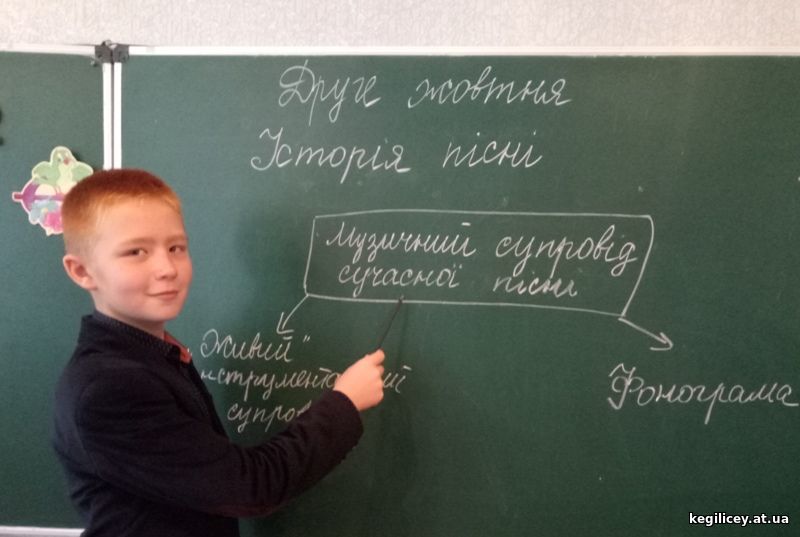 Друге жовтня
Історія пісні
Музичний супровід
сучасної пісні
Живий"
Фонограма
kegilicey.at.ua